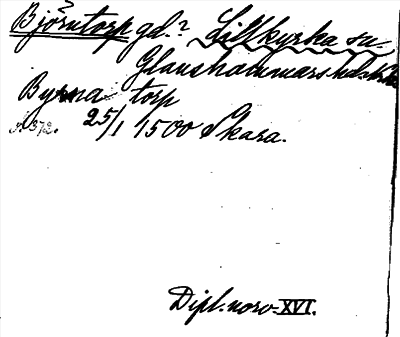 Björntorp gd.? Lillkyrka sn.
Glanshammars hd.
Byrna torp
25/1 1500 Skara.
Dipl. norv. XVI.